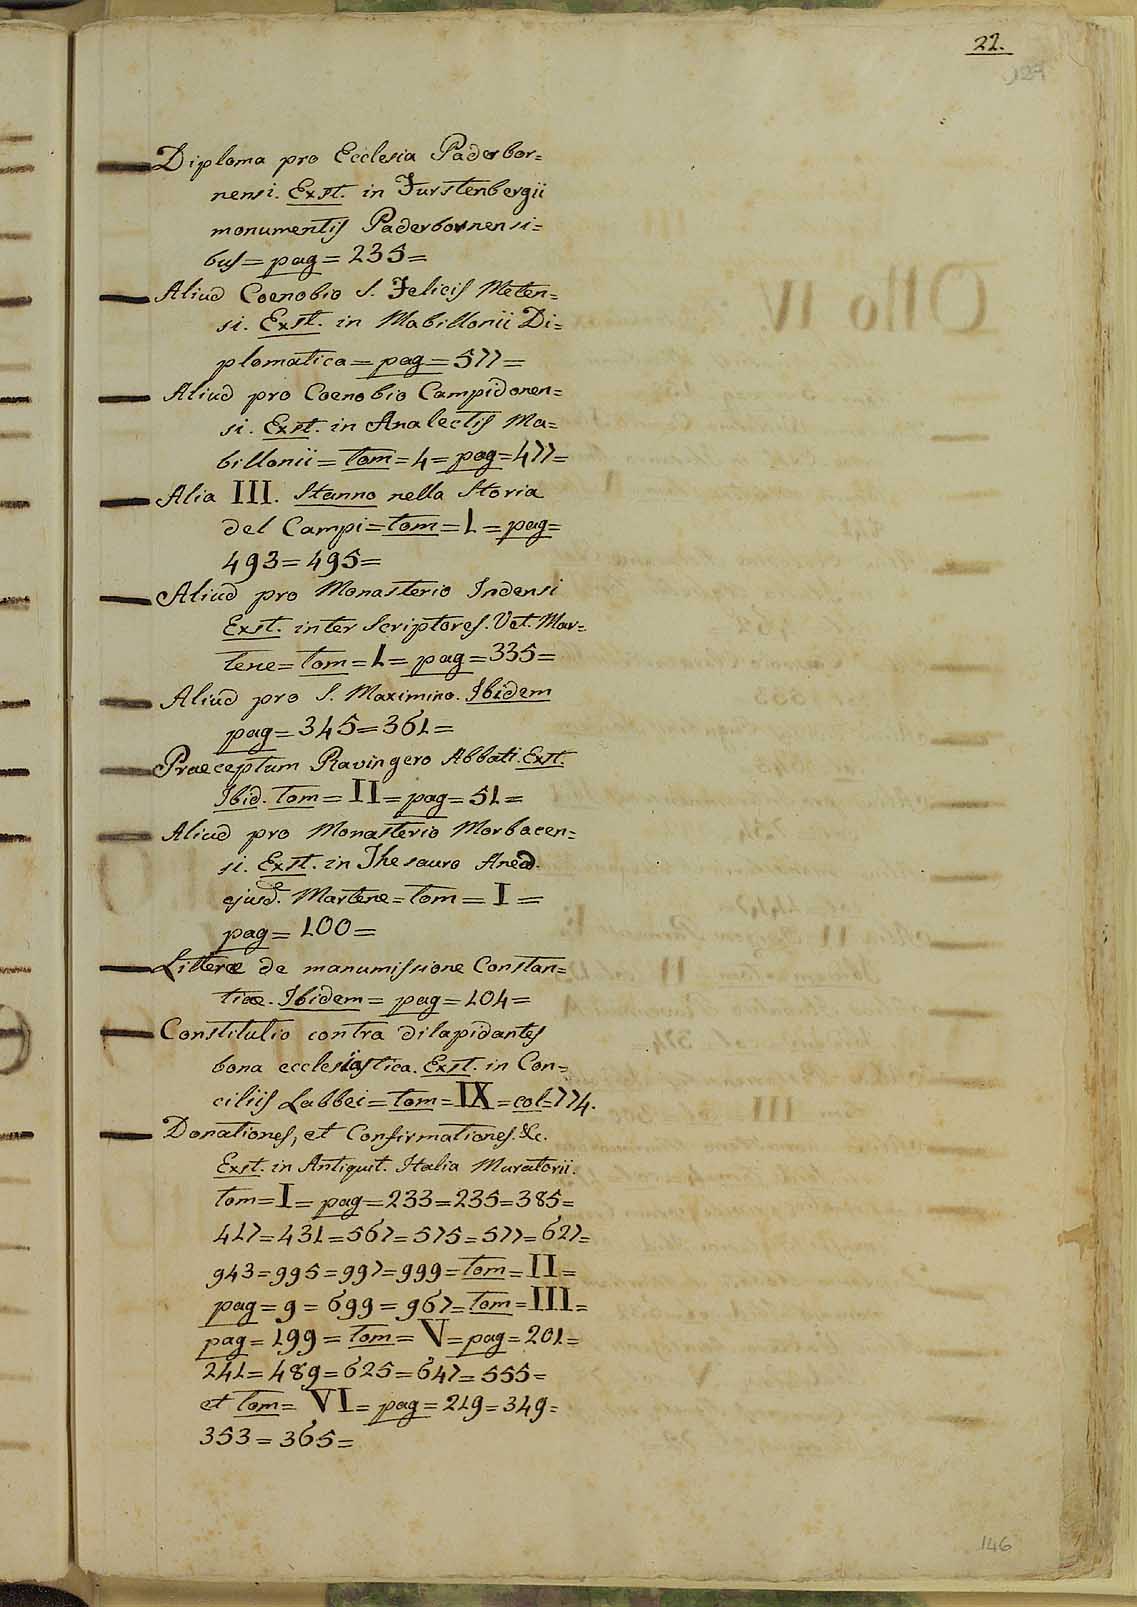 22.
127
Diploma pro Ecclesia Paderbor=
nensi. Exst. in Furstenbergii
monumentis Paderbornensi=
bus= pag= 235=
Aliud Coenobio S. Felicis Meten=
si. Exst. in Mabillonii Di=
plomatica= pag= 577=
Aliud pro Coenobio Campidonen=
si. Exst. in Analectis Ma=
billonii= tom= 4= pag= 477=
Alia III. Stanno nella Storia
del Campi= tom= 1= pag=
493= 495=
Aliud pro Monasterio Indensi
Exst. inter Scriptores. Vet. Mar=
tene= tom= 1= pag= 335=
Aliud pro S. Maximino. Ibidem
pag= 345= 361=
Praeceptum Ravingero Abbati. Exst.
Ibid. tom= II= pag= 51=
Aliud pro Monasterio Morbacen=
si. Exst. in Thesauro Aned.
ejusd. Martene= tom= I=
pag= 100=
Litterae de manumissione Constan=
tiae. Ibidem= pag= 104=
Constitutio contra dilapidantes
bona ecclesiastica. Exst. in Con=
ciliis Labbei= tom= IX= col= 774.
Donationes, et Confirmationes. &c.
Exst. in Antiquit. Italia Muratorii.
tom= I= pag= 233= 235= 385=
417= 431= 567= 575= 577= 627=
943= 995= 997= 999= tom= II=
pag= 9= 699= 967= tom= III=
pag= 199= tom= V= pag= 201=
241= 489= 625= 647= 555=
et tom= VI= pag= 219= 349=
353= 365=
146